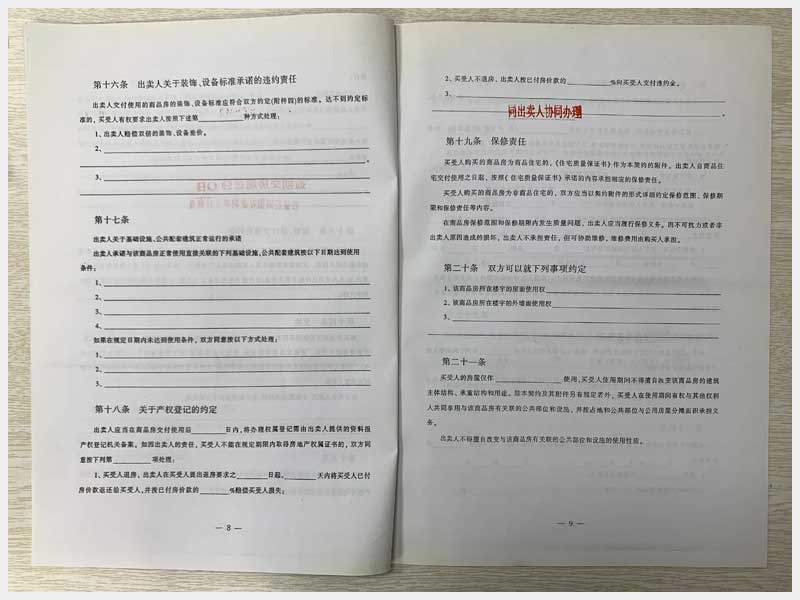 第十六条 出卖人关于装饰、设备标准承诺的违约责任
出卖人交付使用的商品房的装饰、设备标准应符合双方约定(附件四)的标准。达不到约定标
准的，买受人有权要求出卖人按照下述第________种方式处理：
1、出卖人赔偿双倍的装饰、设备差价。
2、________
________。
3、________。
第十七条
出卖人关于基础设施、公共配套建筑正常运行的承诺
出卖人承诺与该商品房正常使用直接关联的下列基础设施、公共配套建筑按以下日期达到使用
条件：
1、________
2、________
3、________
4、________
如果在规定日期内未达到使用条件，双方同意按以下方式处理：
1、________
2、________
3、________
第十八条 关于产权登记的约定
出卖人应当在商品房交付使用后________日内，将办理权属登记需由出卖人提供的资料报
产权登记机关备案。如因出卖人的责任，买受人不能在规定期限内取得房地产权属证书的，双方同
意按下列第________项处理：
1、买受人退房，出卖人在买受人提出退房要求之________日起，________天内将买受人已付
房价款退还给买受人，并按已付房价款的________%赔偿买受人损失；
— 8 —
2、买受人不退房，出卖人按已付房价款的________%向买受人支付违约金。
3、________
同出卖人协同办理
________。
第十九条 保修责任
买受人购买的商品房为商品住宅的，《住宅质量保证书》作为本契约的附件。出卖人自商品住
宅交付使用之日起，按照《住宅质量保证书》承诺的内容承担相应的保修责任。
买受人购买的商品房为非商品住宅的，双方应当以契约附件的形式详细约定保修范围、保修期
限和保修责任等内容。
在商品房保修范围和保修期限内发生质量问题，出卖人应当履行保修义务。因不可抗力或者非
出卖人原因造成的损坏，出卖人不承担责任，但可协助维修，维修费用由购买人承担。
第二十条 双方可以就下列事项约定
1、该商品房所在楼宇的屋面使用权________
2、该商品房所在楼宇的外墙面使用权________
3、________
________
第二十一条
买受人的房屋仅作________使用，买受人使用期间不得擅自改变该商品房的建筑
主体结构、承重结构和用途。除本契约及其附件另有规定者外，买受人在使用期间有权与其他权利
人共同享用与该商品房有关联的公共部位和设施，并按占地和公共部位与公用房屋分摊面积承担义
务。
出卖人不得擅自改变与该商品房有关联的公共部位和设施的使用性质。
— 9 —